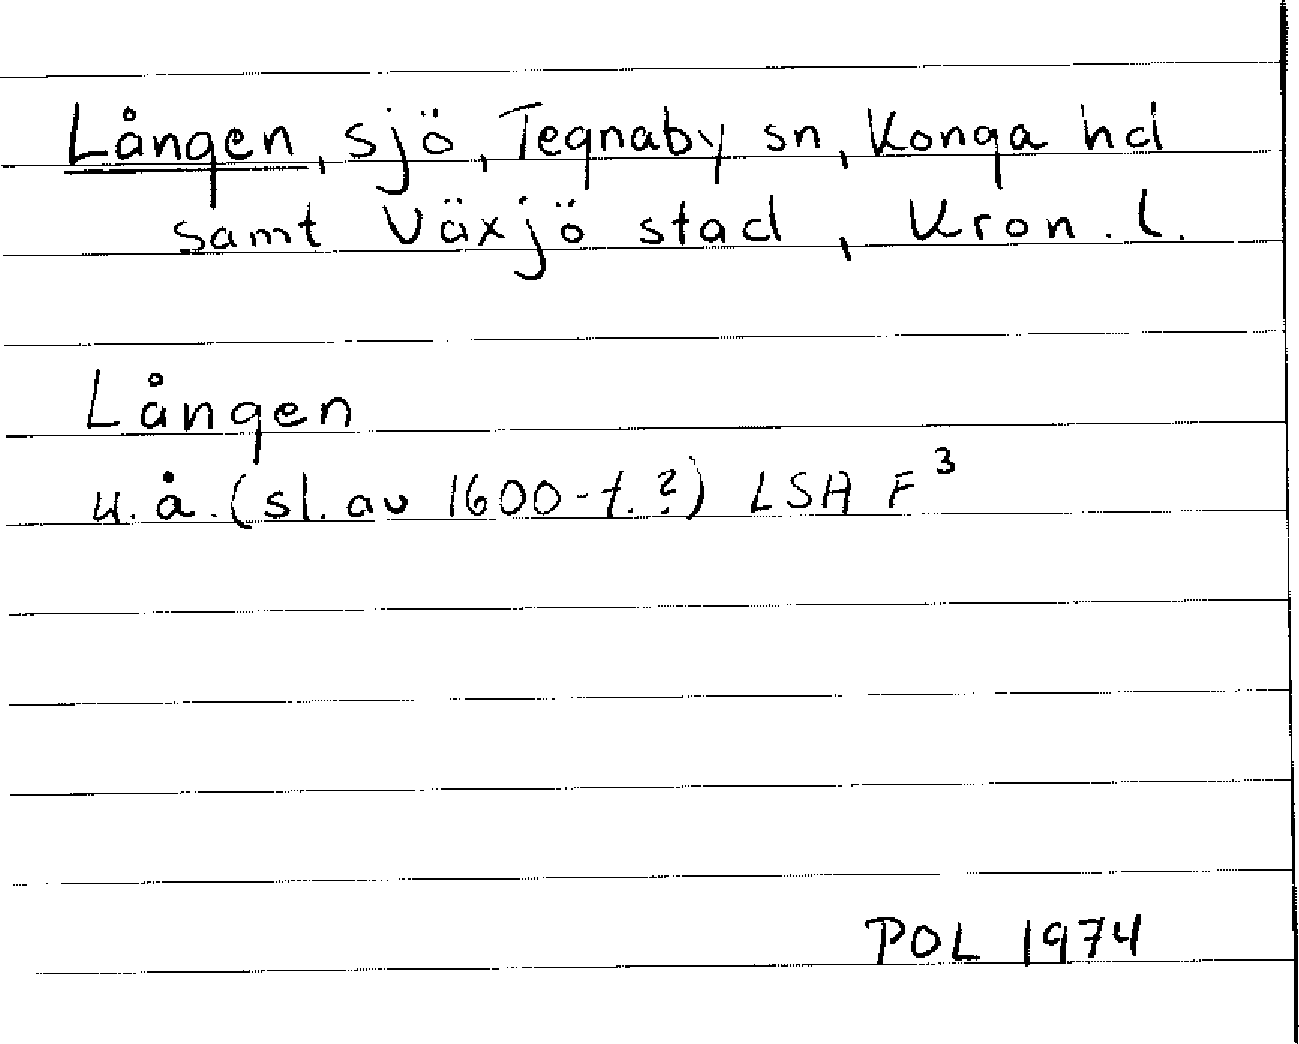 Lången, sjö, Tegnaby sn, Konga hd
samt Växjö stad, Kron. l.
Lången
u.å. (sl. av 1600-t.?) LSA F³
POL 1974